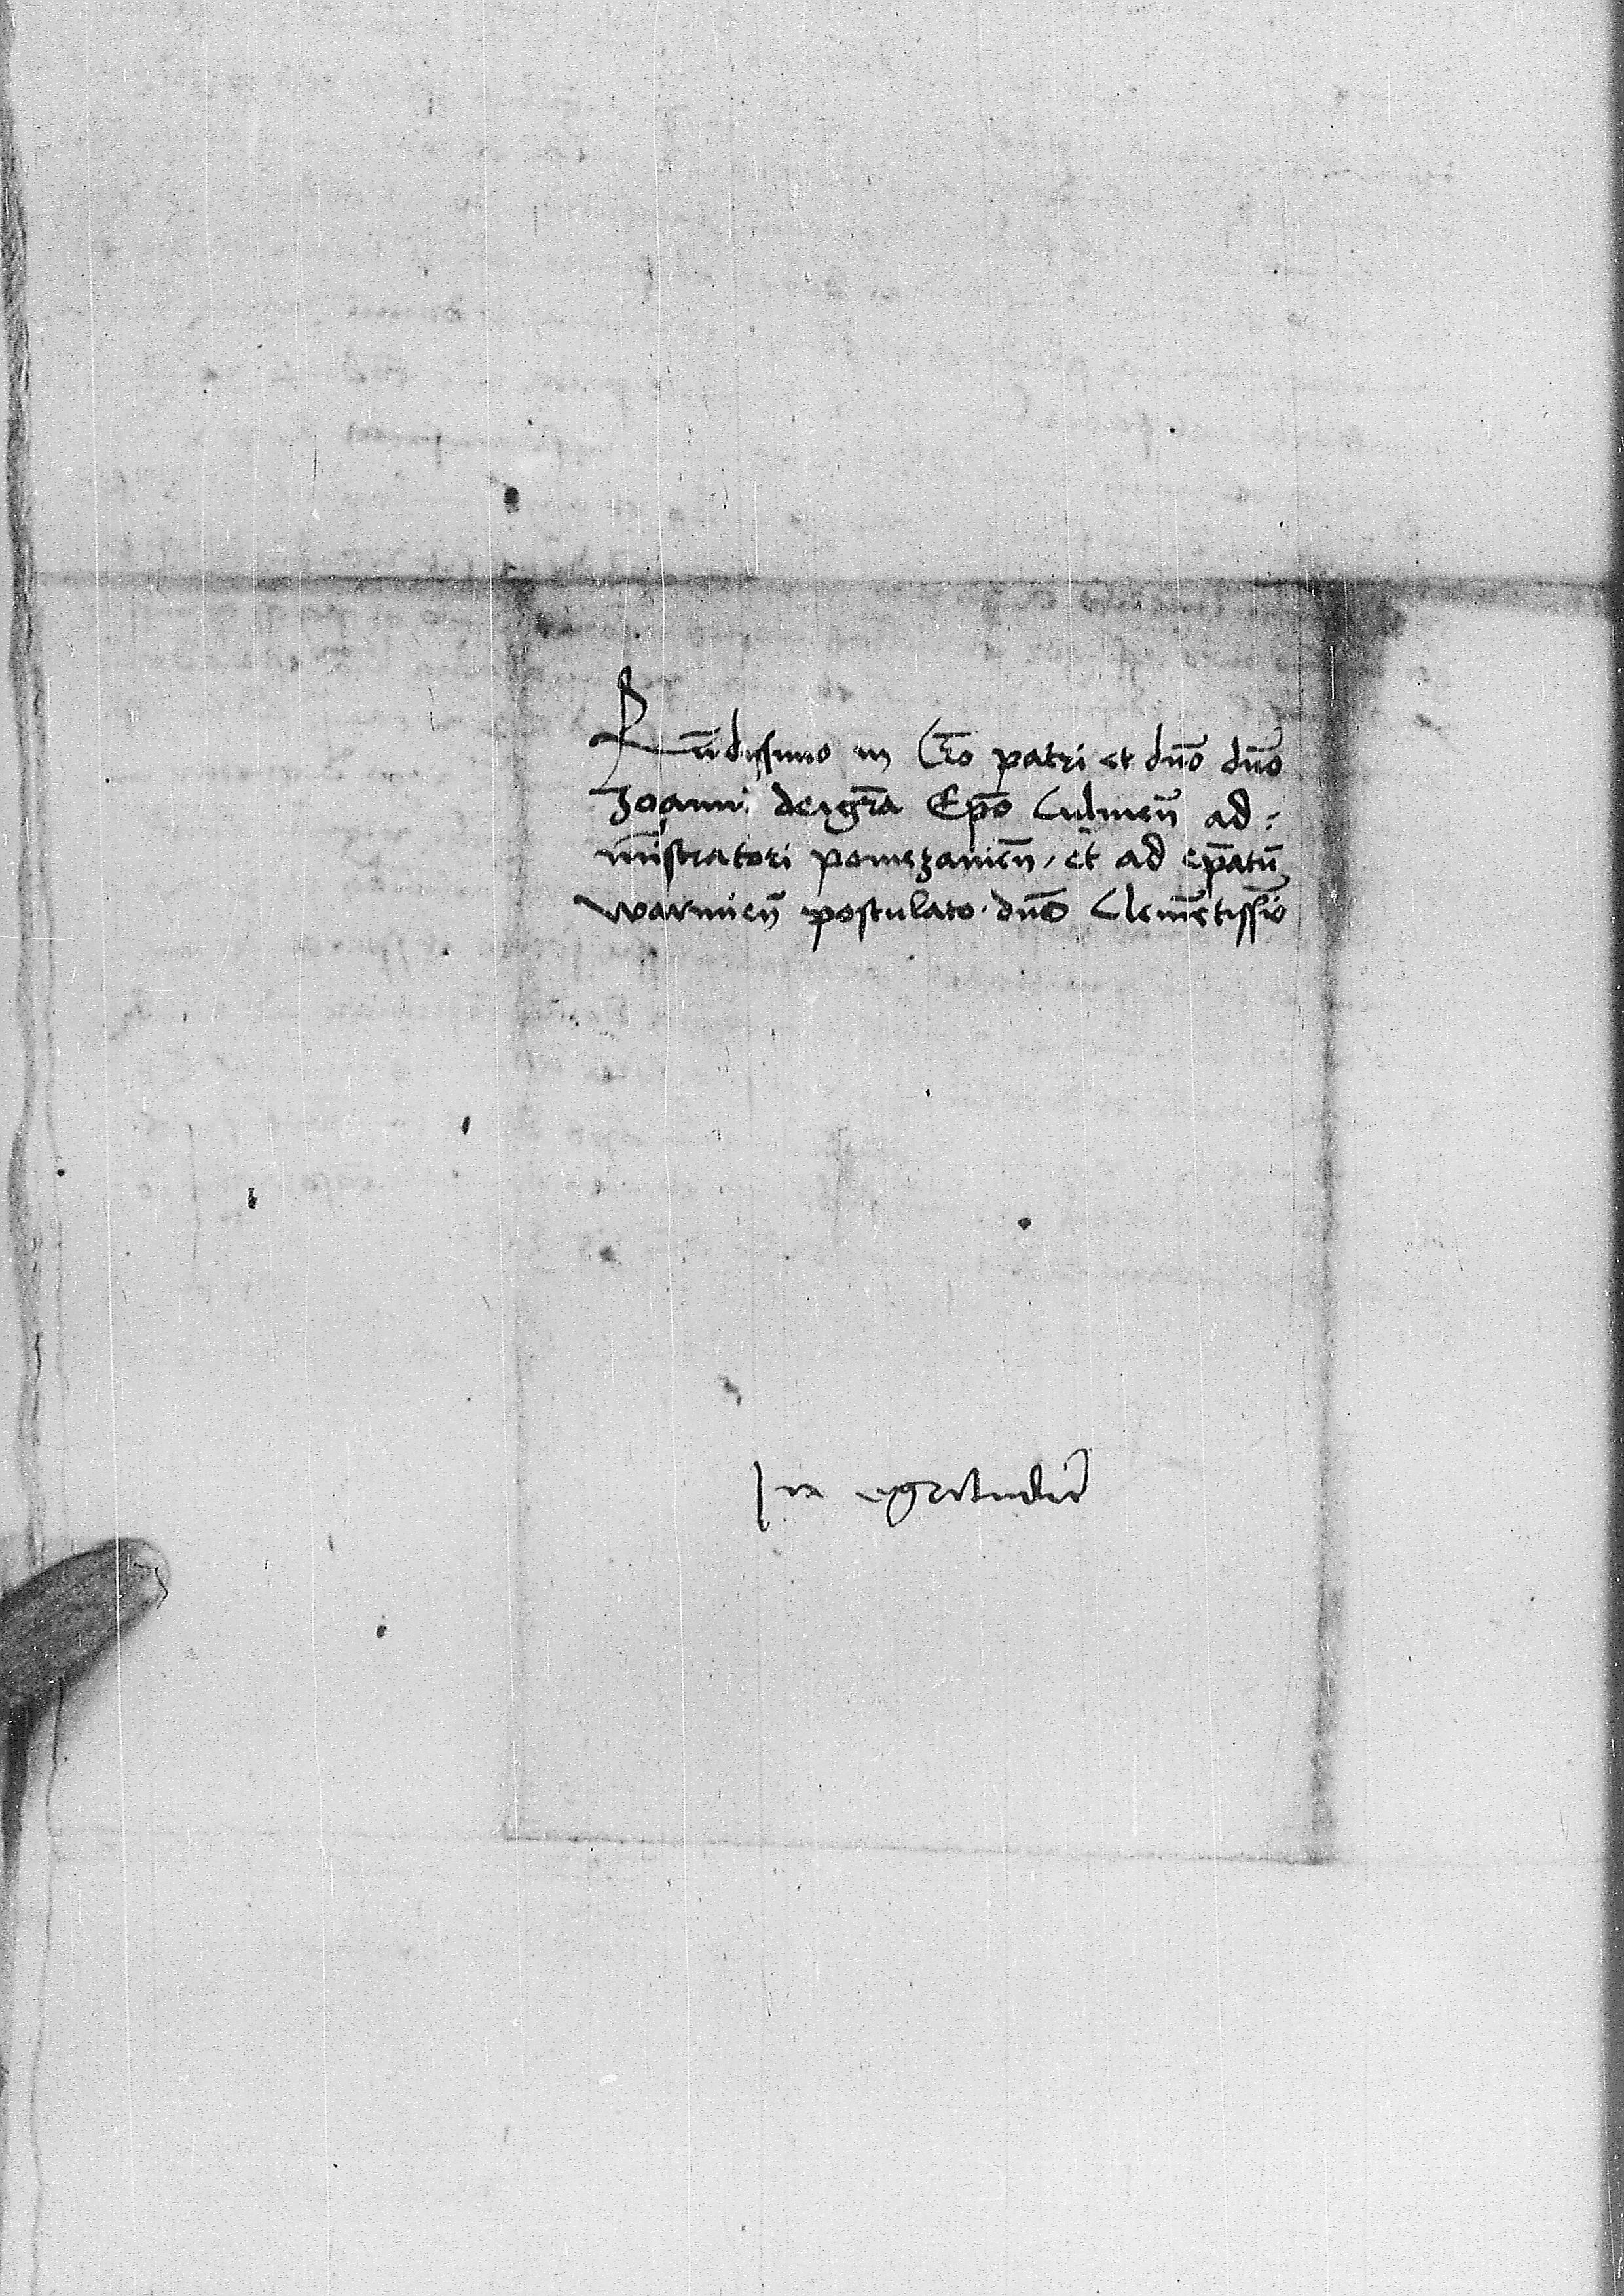 Reu̅dissimo in Cr̅o patri et dn̅o dn̅o
Joanni dei gr̅a Ep̅o Culmen̅ ad-
mi̅stratori pomezanien̅. et ad ep̅atu̅
warmien̅ postulato. dn̅o Cleme̅tissi̅o
In egritudi̅e